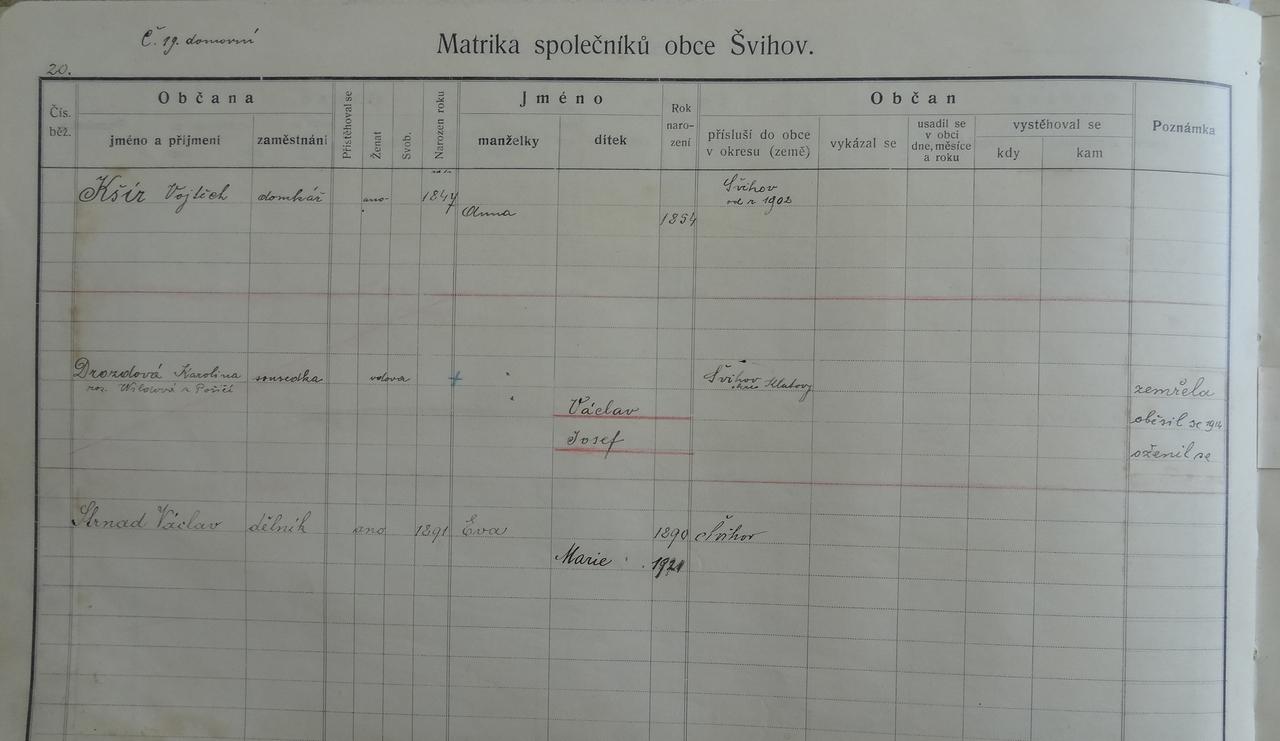 Č. 19. domovní
Matrika společníků obce Švihov.
20.
Čís. běž.
Občana
jméno a příjmení
zaměstnání
Přistěhoval se
Ženat
Svob.
Narozen roku
Jméno
manželky
dítek
Rok naro- zení
Občan
přísluší do obce v okresu (země)
vykázal se
usadil se v obci dne, měsíce a roku
vystěhoval se
kdy
kam
Poznámka
Kšír Vojtěch domkář ano 1847 Švihov
od r 1902
Anna 1854
Drozdová Karolina sousedka vdova + Švihov
roz. z Poříčí Klatovy zemřela
Václav oběsil se 1914
Josef oženil se
Strnad Václav dělník ano 1891 Eva 1890 Švihov
Marie 1921